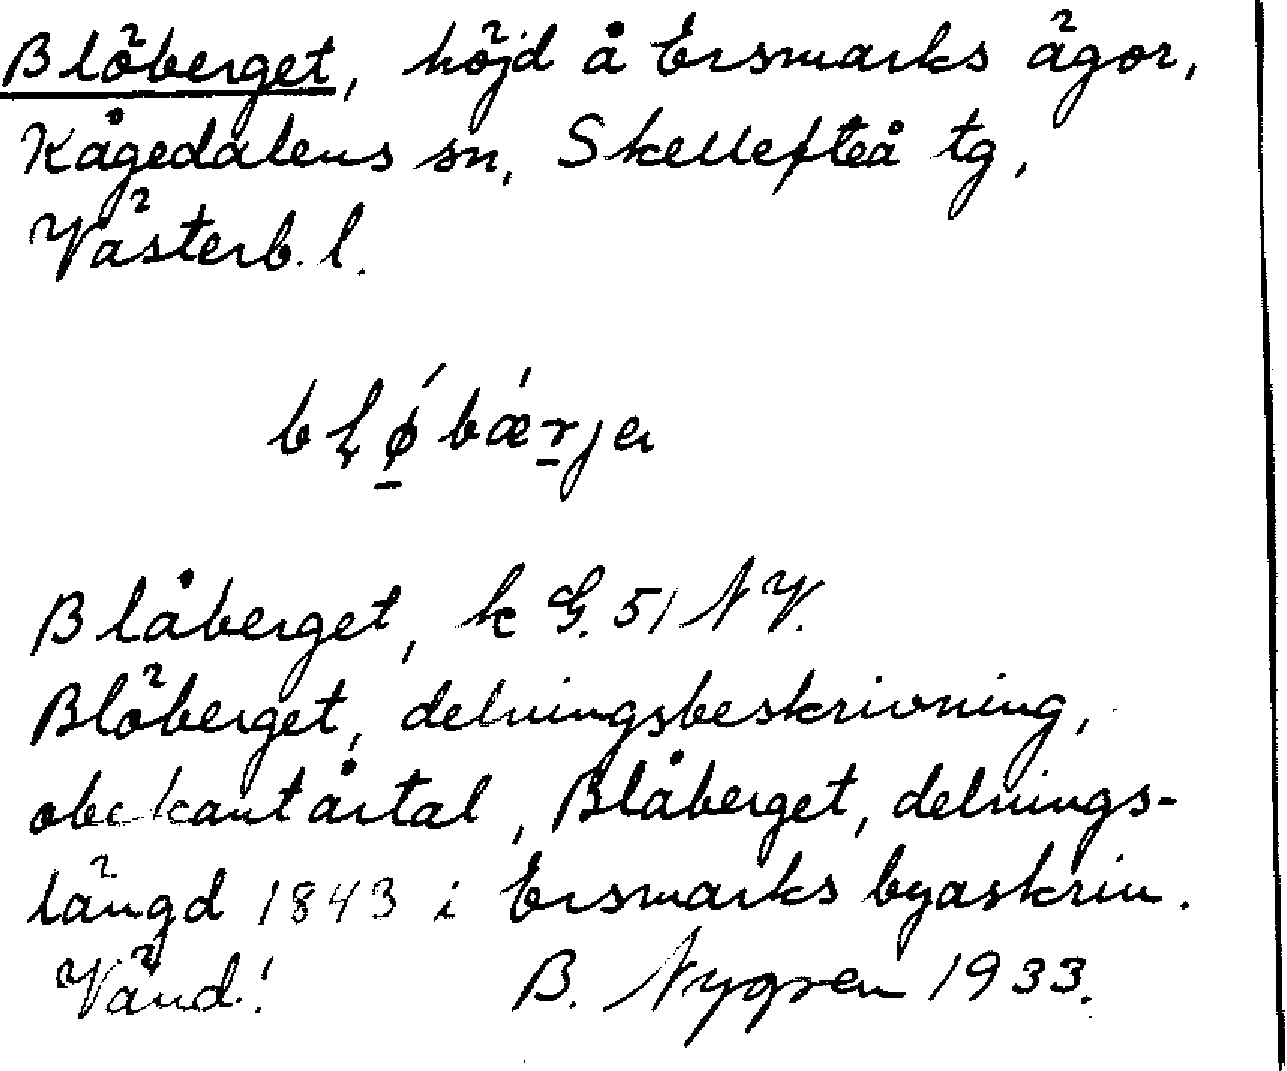 Blöberget, höjd å Ersmarks ägor,
Kågedalens sn, Skellefteå tg,
Västerb. l.
bḷǿ̱bǽṟja
Blåberget, k G. 51 NV.
Blöberget, delningsbeskrivning,
obekant årtal, Blåberget, delnings-
längd 1843 i Ersmarks byaskrin.
Vänd! B. Nygren 1933.